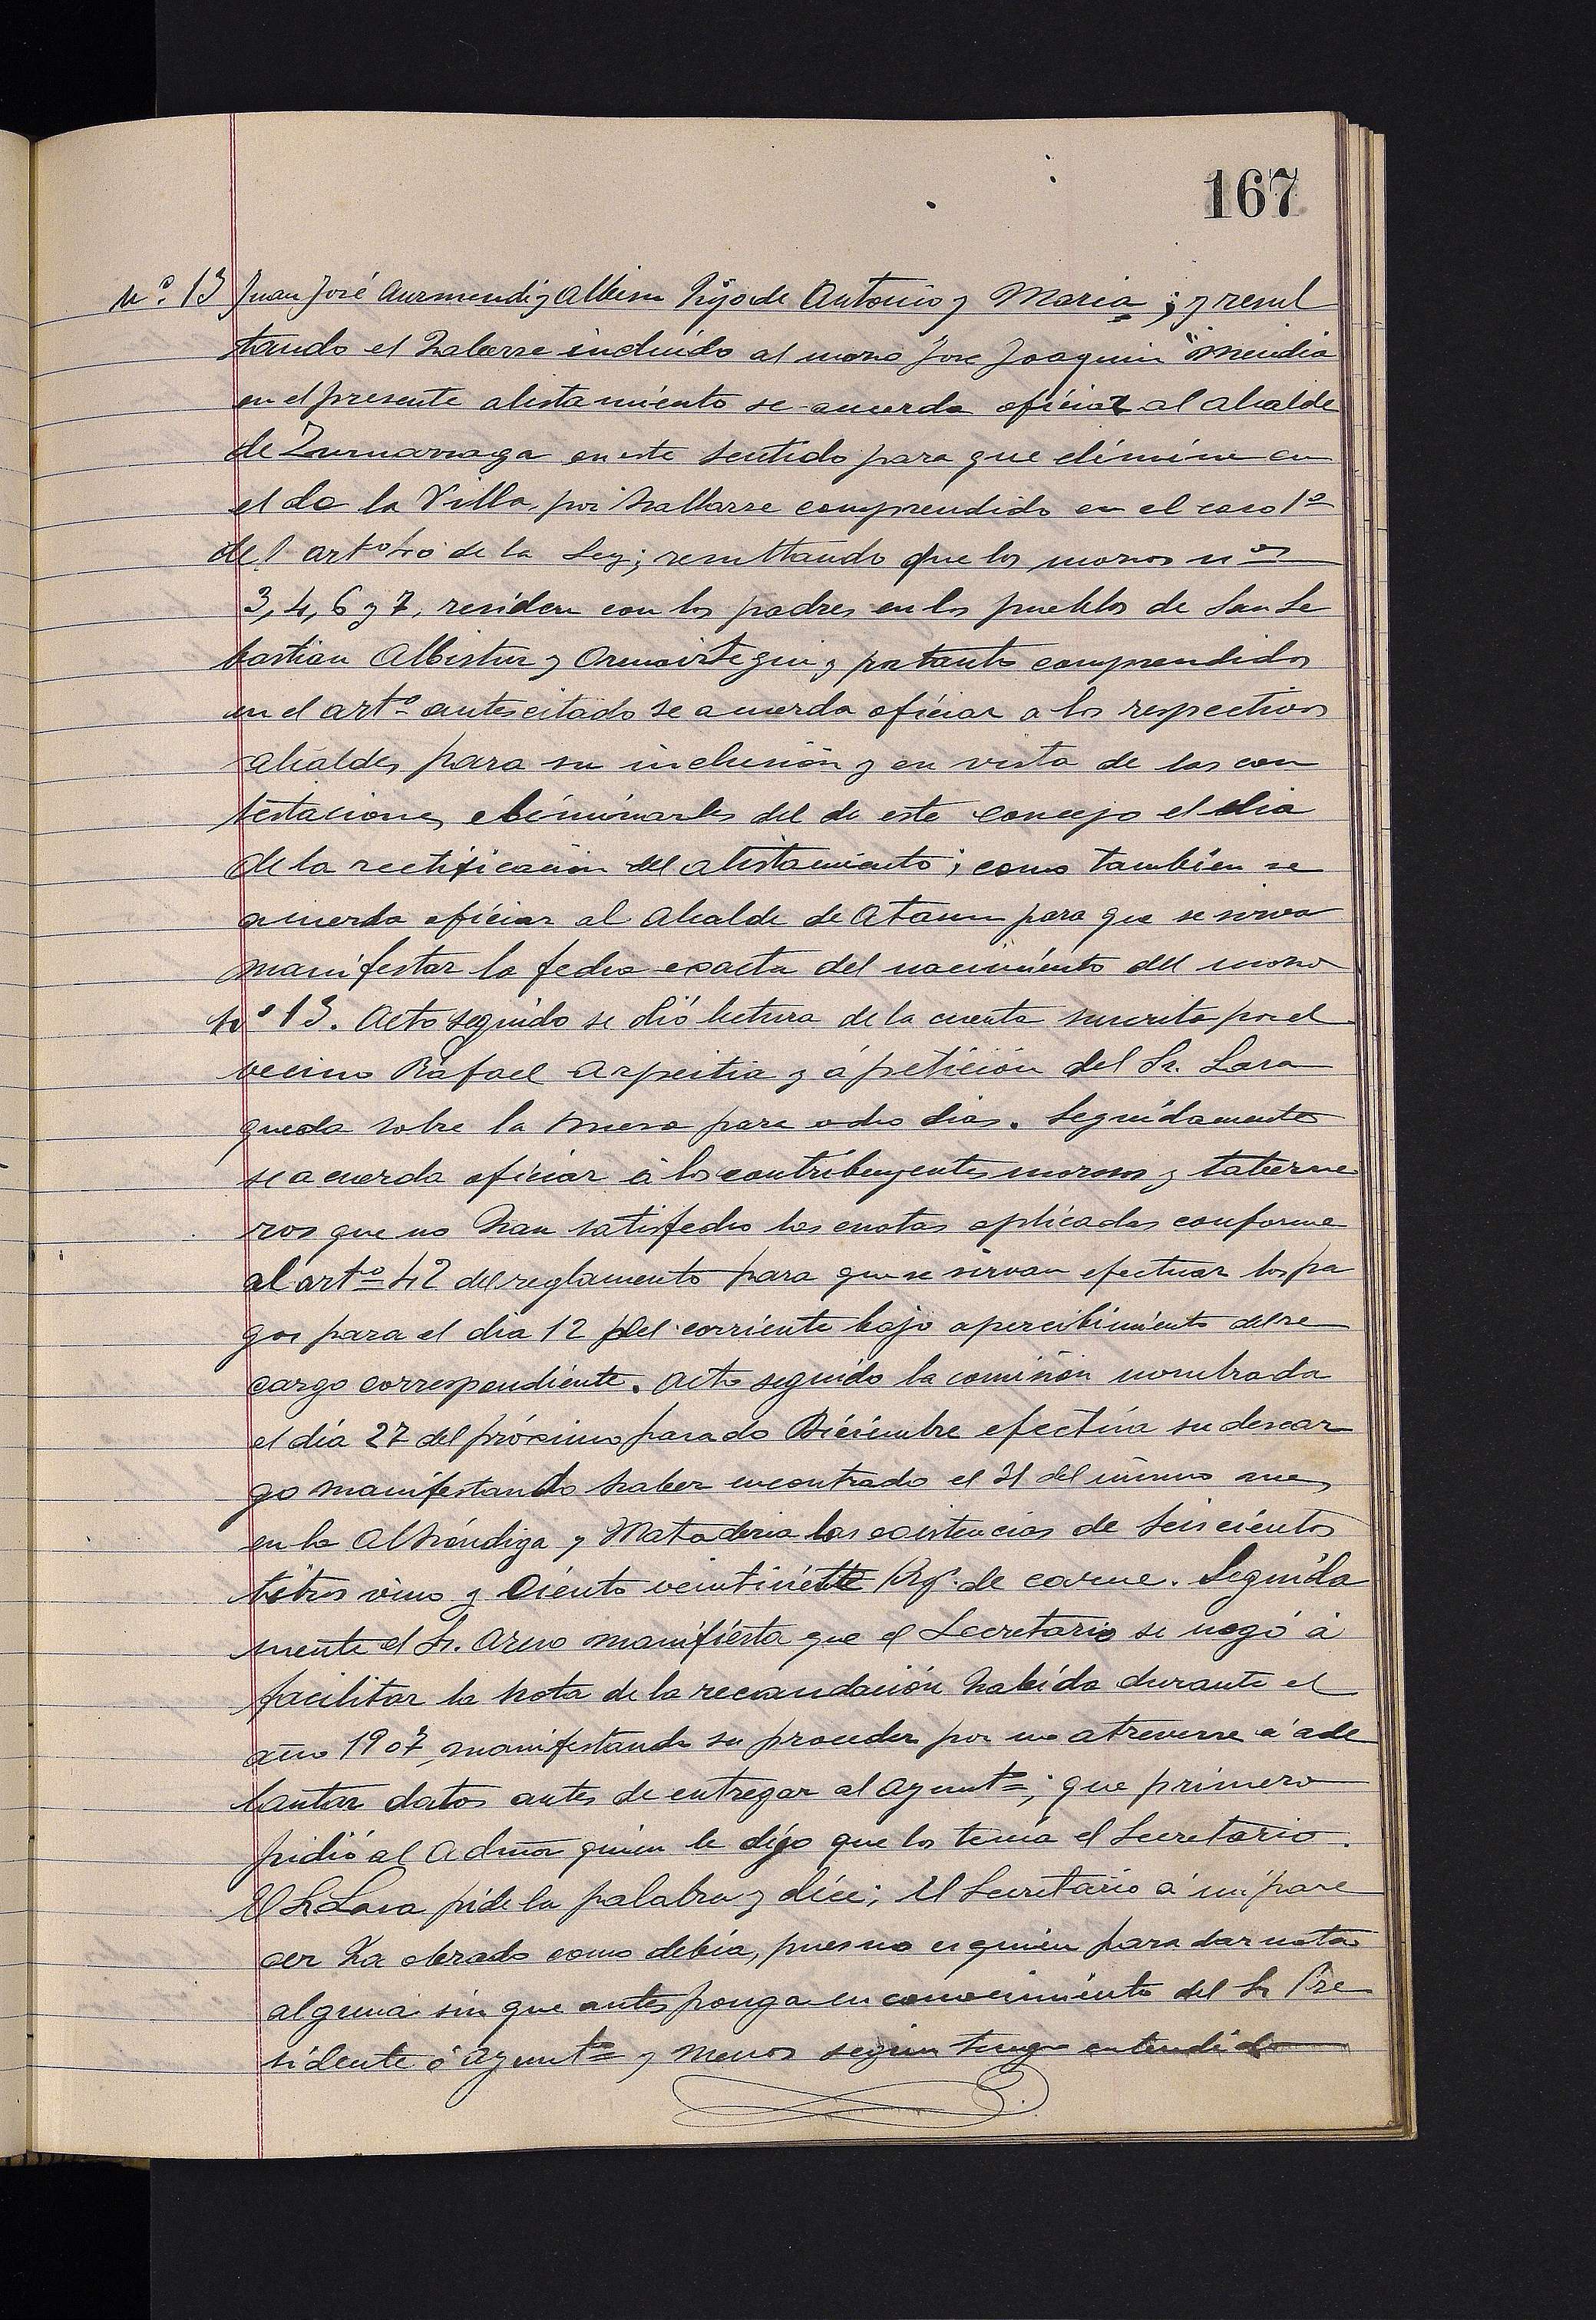 167
Nº. 13 Juan José Aurmendi y Albisu hijo de Antonio y Maria; y resul
tando el haberse incluido al mozo José Joaquin Mendia
en el presente alistamiento se acuerda oficiar al alcalde
de Zumarraga en este sentido para que elimine en
el de la Villa, por hallarse comprendido en el caso 1º
del artº 40 de la Ley; resultando que los mozos nºs
3, 4, 6 y 7, residen con los padres en los pueblos de San Se
bastian Albistur y Ormaiztegui y por tanto comprendidos
en el artº antes citado se acuerda oficiar a los respectivos
alcaldes para su inclusión y en vista de las con
testaciones eliminarles del de este concejo el dia
de la rectificación del alistamiento; como también se
acuerda oficiar al Alcalde de Ataun para que se sirva
manifestar la fecha exacta del nacimiento del mozo
nº 13. Acto seguido se dió lectura de la cuenta suscrita por el
vecino Rafael Azpeitia y á petición del Sr. Lasa
queda sobre la mesa para ocho dias. Seguidamente
se acuerda oficiar á los contribuyentes morosos y taberne
ros que no han satisfecho las cuotas aplicadas conforme
al artº 42 del reglamento para que se sirvan efectuar los pa
gos para el dia 12 del corriente bajo apercibimiento del re
cargo correspondiente. Acto seguido la comisión nombrada
el día 27 del próximo pasado Diciembre efectúa su descar
go manifestando haber encontrado el 31 del mismo mes
en la Alhóndiga y Mataderia las existencias de seiscientos
litros vino y ciento veintisiete Kg. de carne. Seguida
mente el Sr. manifiesta que el Secretario se negó á
facilitar la nota de la recaudación habida durante el
año 1907, manifestando su proceder por no atreverse á ade
lantar datos antes de entregar al Ayuntº; que primero
pidió al Admor quien le dijo que los tenía el Secretario.
El Sr Lasa pide la palabra y dice; El Secretario á mi pare
cer ha obrado como debía, pues no es quien para dar nota
alguna sin que antes ponga en conocimiento del Sr Pre
sidente ó Ayuntº y menos según tengo entendido